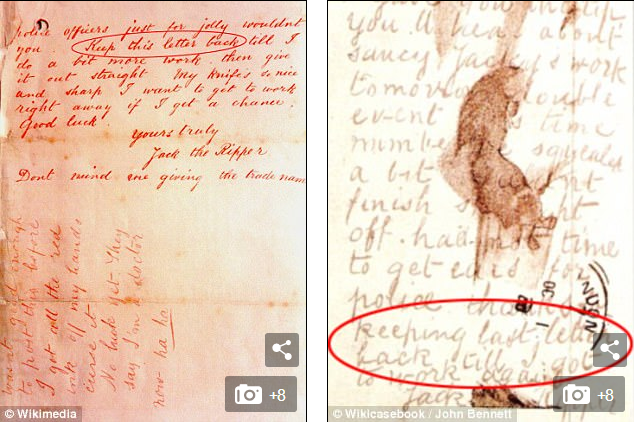 police officers just for jolly wouldnt
you. Keep this letter back till I
do a bit more work. then give
it out straight My knife's so nice
and sharp I want to get to work
right away if I get a chance.
Good luck.
Yours truly
Jack the Ripper
Dont mind me giving the trade nam
enough
to post this before
I got all the red
ink off my hands
curse it
No luck yet. They
say I'm a doctor
now ha ha
+8
© Wikimedia
about
saucy Jacky's work
tomorrow double
event time
number squealed
a bit
finish
off. had time
to get ears for
police
keeping last
back till I got
to work again.
Jack
30
+8
© Wikicasebook / John Bennett